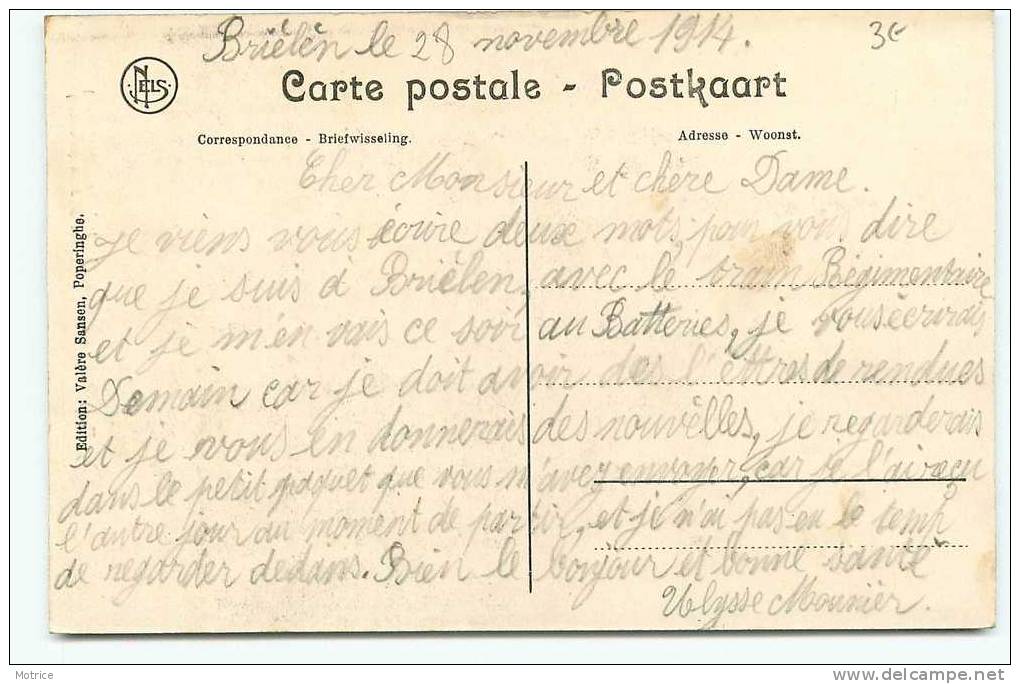 Briélen le 28 novembre 1914.
3€
NELS
Carte postale - Postkaart
Correspondance - Briefwisseling.
Adresse - Woonst.
Edition: Valère Sansen, Poperinghe.
Cher Monsieur et chère Dame.
je viens vous écrire deux mots, pour vous dire
que je suis à Briélen, avec le train Régimentaire
et je m'en vais ce soir au Batteries, je vous écrirais
Demain car je doit avoir des l'ettres de rendues
et je vous en donnerais des nouvèlles, je regarderais
dans le petit paquet que vous m'avez envoyer, car je l'ai reçu
l'autre jour au moment de partir, et je n'ai pas eu le temp
de regarder dedans. Bien le bonjour et bonne santé
Ulysse Mounier.
Motrice
www.delcampe.net